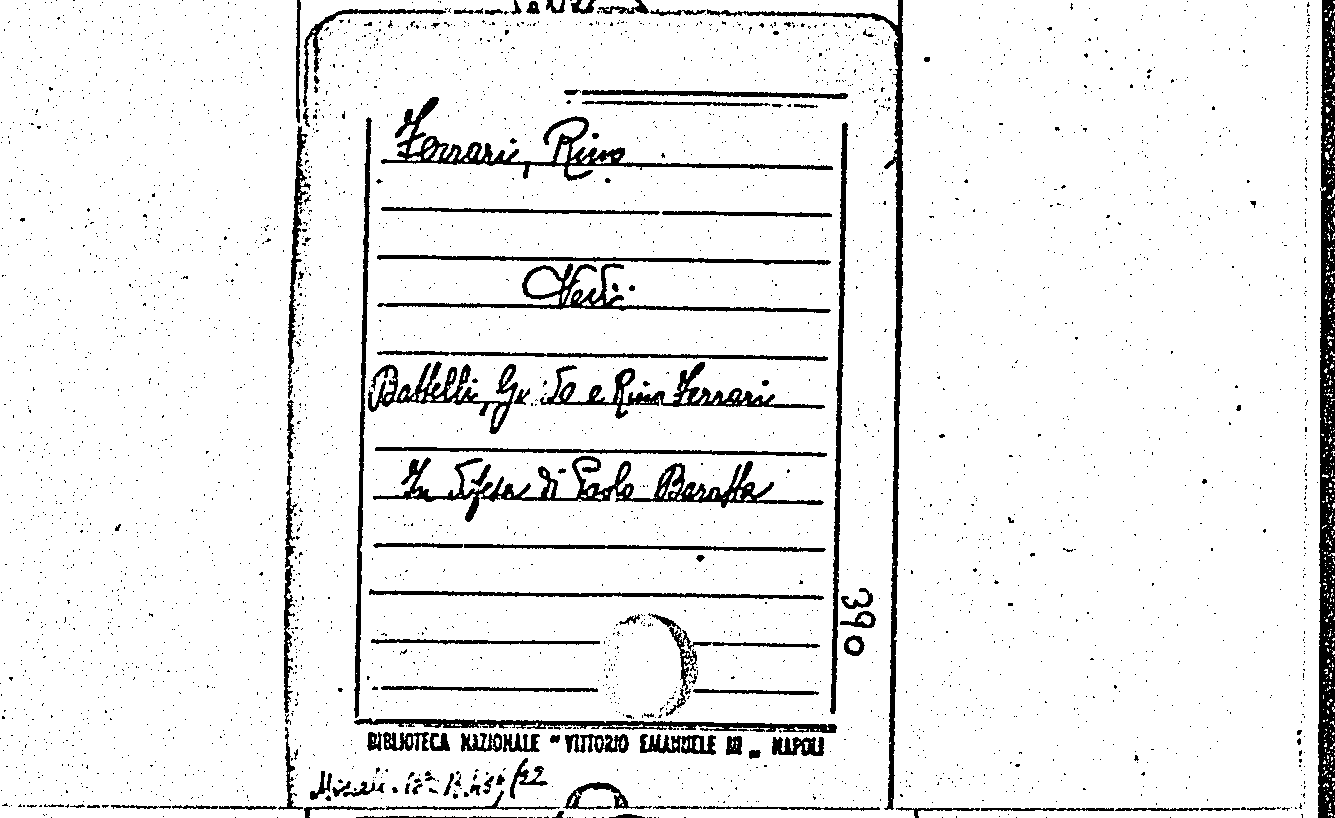 Ferrari, Rino
Vedi:
Battelli, Guido e Rino Ferrari
In difesa di Paolo Baratta
390
BIBLIOTECA NAZIONALE "VITTORIO EMANUELE III" NAPOLI